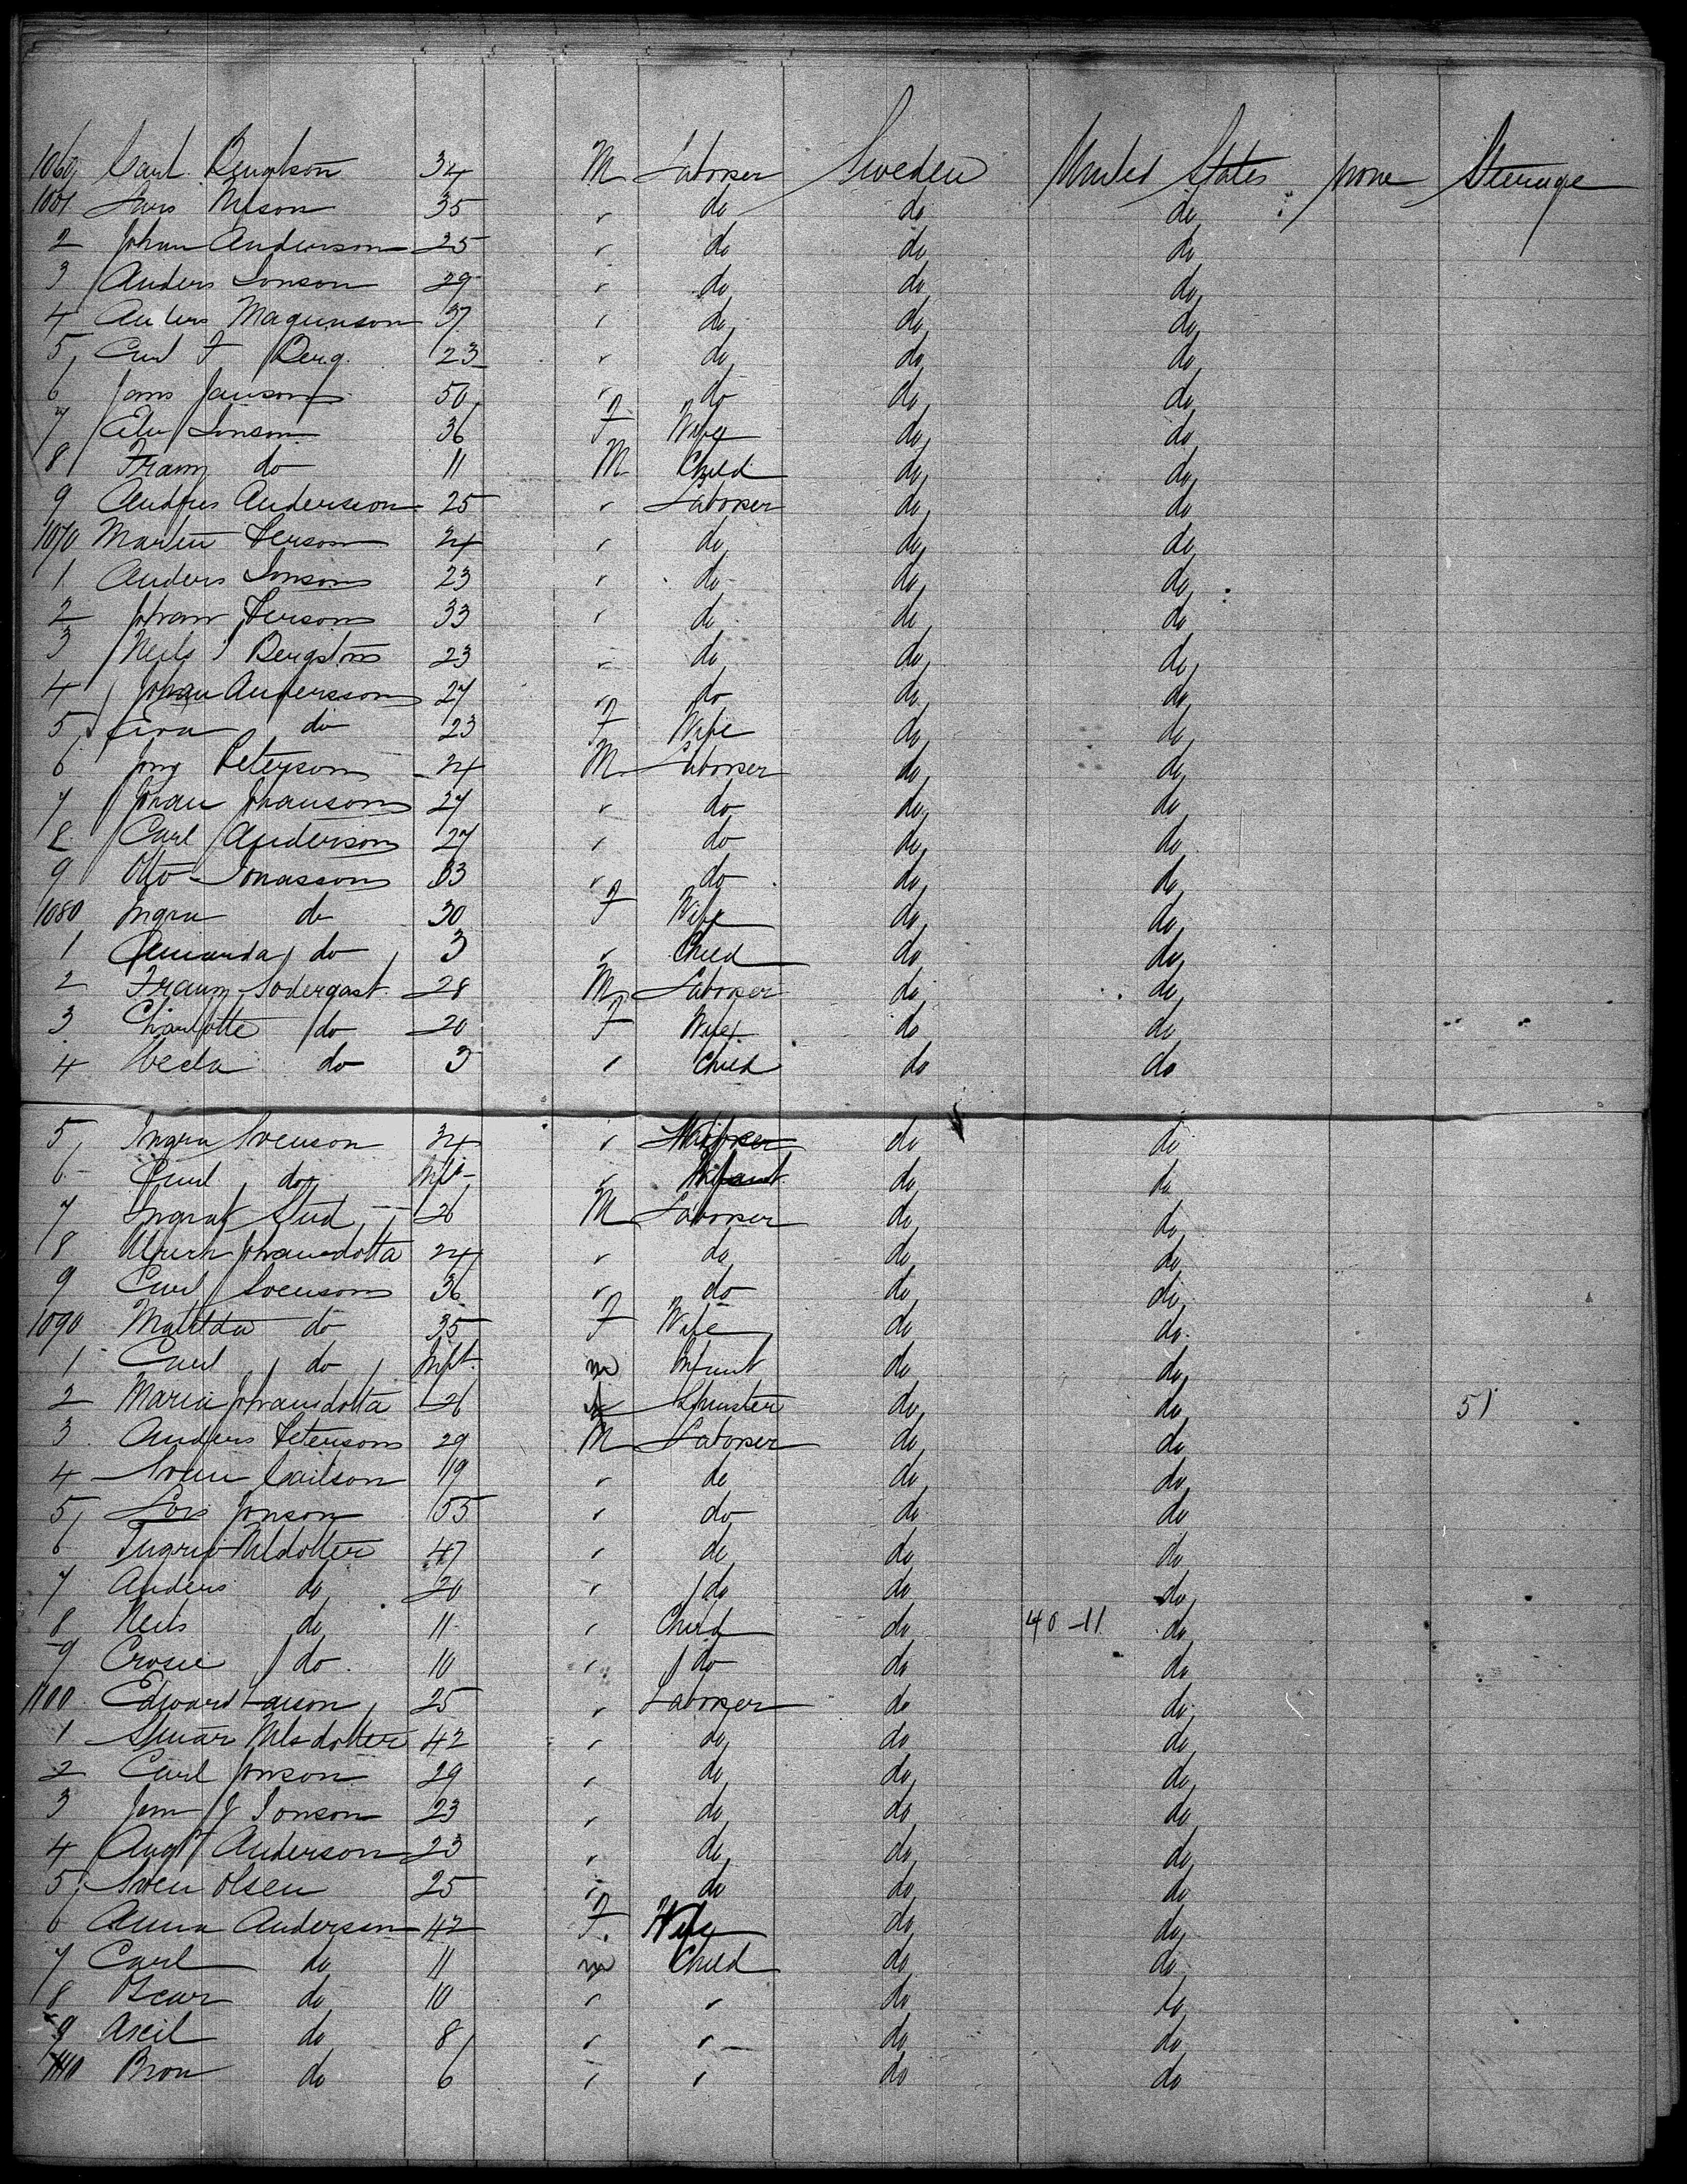 1060 Carl Bengtson 34 M Laborer Sweden United States none Steerage
1061 Lars Nilson 35 " do do do
2 Johan Anderson 25 " do do do
3 Anders Jonson 29 " do do do
4 Anders Magnnson 37 " do do do
5 Carl F Berg 23 " do do do
6 Janson 50 " do do do
7 Jonson 36 F Wife do do
8 Franz do 11 M Child do do
9 Andres Anderson 25 " Laborer do do
1070 Martin Person 24 " do do do
1 Anders Jonson 23 " do do do
2 Johan Person 33 " do do do
3 Neils Bengtson 23 " do do do
4 Johan Andersson 27 " do do do
5 Eva do 23 F Wife do do
6 Peterson 24 M Laborer do do
7 Johan Johanson 27 " do do do
8 Carl Anderson 27 " do do do
9 Otto Jonasson 33 " do do do
1080 Ingra do 30 F Wife do do
1 Amanda do 3 " Child do do
2 Franz Sodergast 28 M Laborer do do
3 Charlotte do 20 F Wife do do
4 do 3 " Child do do
5 Ingra Svenson 34 " do do
6 Carl do Inft " Infant do do
7 26 M Laborer do do
8 Johansdotta 24 " do do do
9 Carl Svenson 36 " do do do
1090 Matilda do 35 F Wife do do
1 Carl do Inft m Infant do do
2 Maria Johansdotta 26 f Spinster do do 51
3 Anders Peterson 29 M Laborer do do
4 Sven Carlson 19 " do do do
5 Jonson 55 " do do do
6 Ingrid Nilsdotter 47 " do do do
7 Anders do 20 " do do do
8 Neils do 11 " Child do 40-11 do
9 do 10 " do do do
1100 Edward Larson 25 " Laborer do do
1 Nilsdotter 42 " do do do
2 Carl Jonson 29 " do do do
3 J Jonson 23 " do do do
4 Augt Anderson 23 " do do do
5 Sven Olsen 25 " do do do
6 Anna Anderson 42 F. Wife do do
7 Carl do 11 m Child do do
8 Oscar do 10 " " do do
9 Axil do 8 " " do do
1110 Bron do 6 " " do do